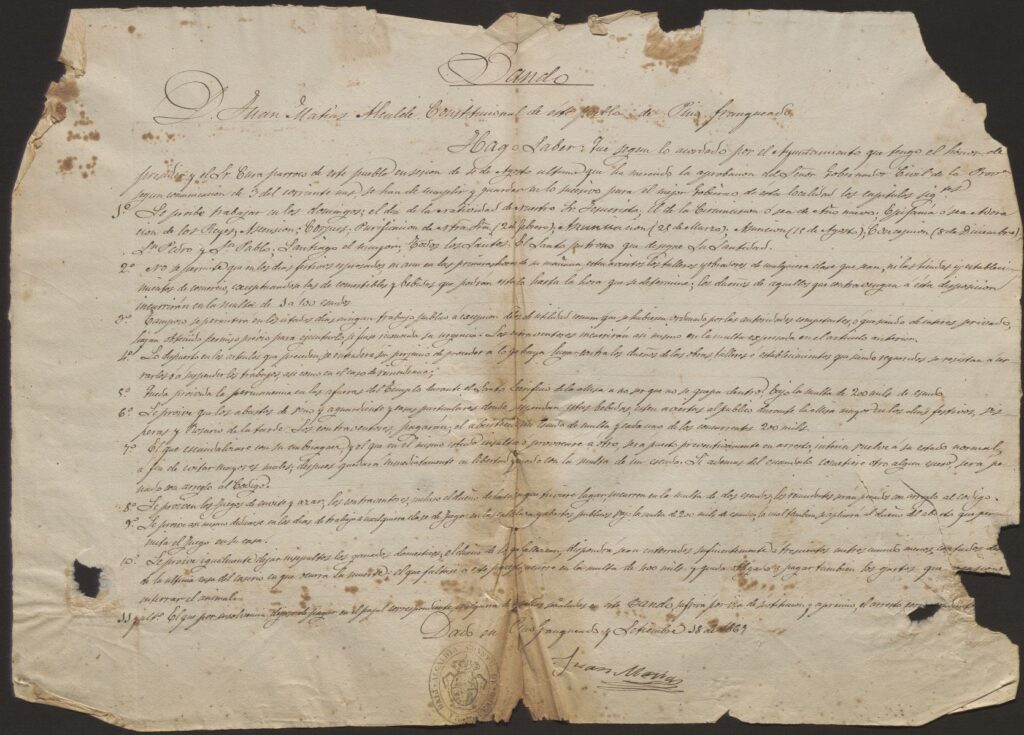 Bando
D. Juan Matias Alcalde Constitucional de este pueblo de Pino franqueado
Hago Saber: Que segun lo acordado por el Ayuntamiento que tengo el honor de
presidir y el Sr Cura parroco de este pueblo en sesion de de Agosto ultimo, que ha merecido la aprobacion del Señor Gobernador Civil de la
segun comunicacion de 3 del corriente mes, se han de cumplir y guardar en lo subcesivo para el mejor Gobierno de esta localidad los capitulos
1º Se proibe trabajar en los domingos; el dia de la Natividad de nuestro Sr Jesucristo; el de la Circuncision ó sea de Año nuevo; Epifania ó sea Adora
cion de los Reyes; Ascension; Corpus; Purificacion de Ntra Sra (2 de febrero); Anunciacion (25 de Marzo); Asuncion (15 de Agosto); Concepcion (8 de Diciembre)
Sn Pedro y Sn Pablo; Santiago el mayor; Todos los Santos; El Santo patrono que designe Su Santidad.
2º No se permite que en los dias festivos espresados ni aun en las primeras horas de su mañana esten abiertos los talleres y obradores de cualquiera clase que sean, ni las tiendas y estableci
mientos de comercio, exceptuandose las de comestibles y bebidas que podran estarlo hasta la hora que se determine; los dueños de aquellos que contravengan a esta disposicion
incurrirán en la multa de 3 a 100 escudos
3º Tampoco se permitira en los citados dias ningun trabajo publico a excepcion de los de utilidad comun que se hubiesen ordenado por las autoridades competentes, o que siendo de interes privado,
hayan obtenido permiso previo para ejecutarlo, si fuese reconocida su urgencia. Los contraventores incurrirán asi mismo en la multa espresada en el articulo anterior.
4º Lo dispuesto en los articulos que preceden, se entendera sin perjuicio de proceder a lo que haya lugar contra los dueños de las obras, talleres o establecimientos que siendo requeridos se resistan a cer
rarlos o a suspender los trabajos asi como en el caso de reincidencia;
5º Queda proivida la permanencia en las afueras del Templo durante el Santo Sacrificio de la Misa a no ser que no se quepa dentro, bajo la multa de 200 mils de escudo
6º Se proive que los abastos de vino y aguardiente y casas particulares donde se espendan estas bebidas, esten aviertos al publico durante la Misa mayor en los dias festivos, vis
peras y Rosario de la tarde. Los contraventores, pagarán, el abastecedor un escudo de multa y cada uno de los concurrentes 200 mils.
7º El que escandalizare con su embriaguez, y el que en el mismo estado insultase o provocase a otro sera puesto preventivamente en arresto, interin vuelve a su estado normal,
a fin de evitar mayores males; despues quedará inmediatamente en libertad pagando con la multa de un escudo. Si ademas del escandalo cometiere otro algun esceso sera pe
nado con arreglo al Codigo.
8º Se proiven los juegos de envite y azar; los contraventores, incluso el dueño de la casa en que tuviere lugar, incurren en la multa de dos escudos; los reincidentes seran penados con arreglo al codigo.
9º Se proive asi mismo dedicarse en los dias de trabajo a cualquiera clase de juego en las calles, tabernas y abastos publicos bajo la multa de 200 mils de escudo, la multa tambien se estiende al dueño del abasto que per
mita el juego en su casa.
10. Se proive igualmente dejar insepultos los ganados domesticos; el dueño de los que fallezcan, dispondra sean enterrados suficientemente a trescientos metros cuando menos, contados des
de la ultima casa del caserio en que ocurra la muerte: el que faltare a este precepto incurre en la multa de 400 mils y queda obligado a pagar tambien los gastos que ocasione
enterrar el animal.
11 y ultº. El que por insolvencia dejare de pagar en el papel correspondiente cualquiera de las multas señaladas en este Bando, sufrira por via de sustitucion y apremio, el arresto
Dado en Pino franqueado y Setiembre 18 de 1867
Juan Matias